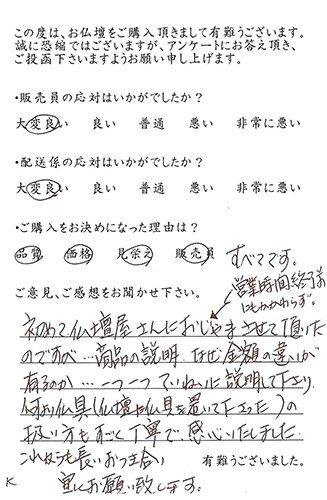 この度は、お仏壇をご購入頂きまして有難うございます。
誠に恐縮ではございますが、アンケートにお答え頂き、
ご投函下さいますようお願い申し上げます。
・販売員の応対はいかがでしたか？
大変良い 良い 普通 悪い 非常に悪い
・配送係の応対はいかがでしたか？
大変良い 良い 普通 悪い 非常に悪い
・ご購入をお決めになった理由は？
品質 価格 見栄え 販売員 すべてです。
営業時間終了
にもかかわらず。
ご意見、ご感想をお聞かせ下さい。
初めて仏壇屋さんにおじゃまさせて頂いた
のですが…商品の説明、なぜ金額の違いが
有るのか…一つ一つていねいに説明して下さり
何より仏具(仏壇や仏具を置いて下さった)の
扱い方もすごく丁寧で、感心いたしました
これからも長いおつき合い
有難うございました。
K 宜しくお願い致します。